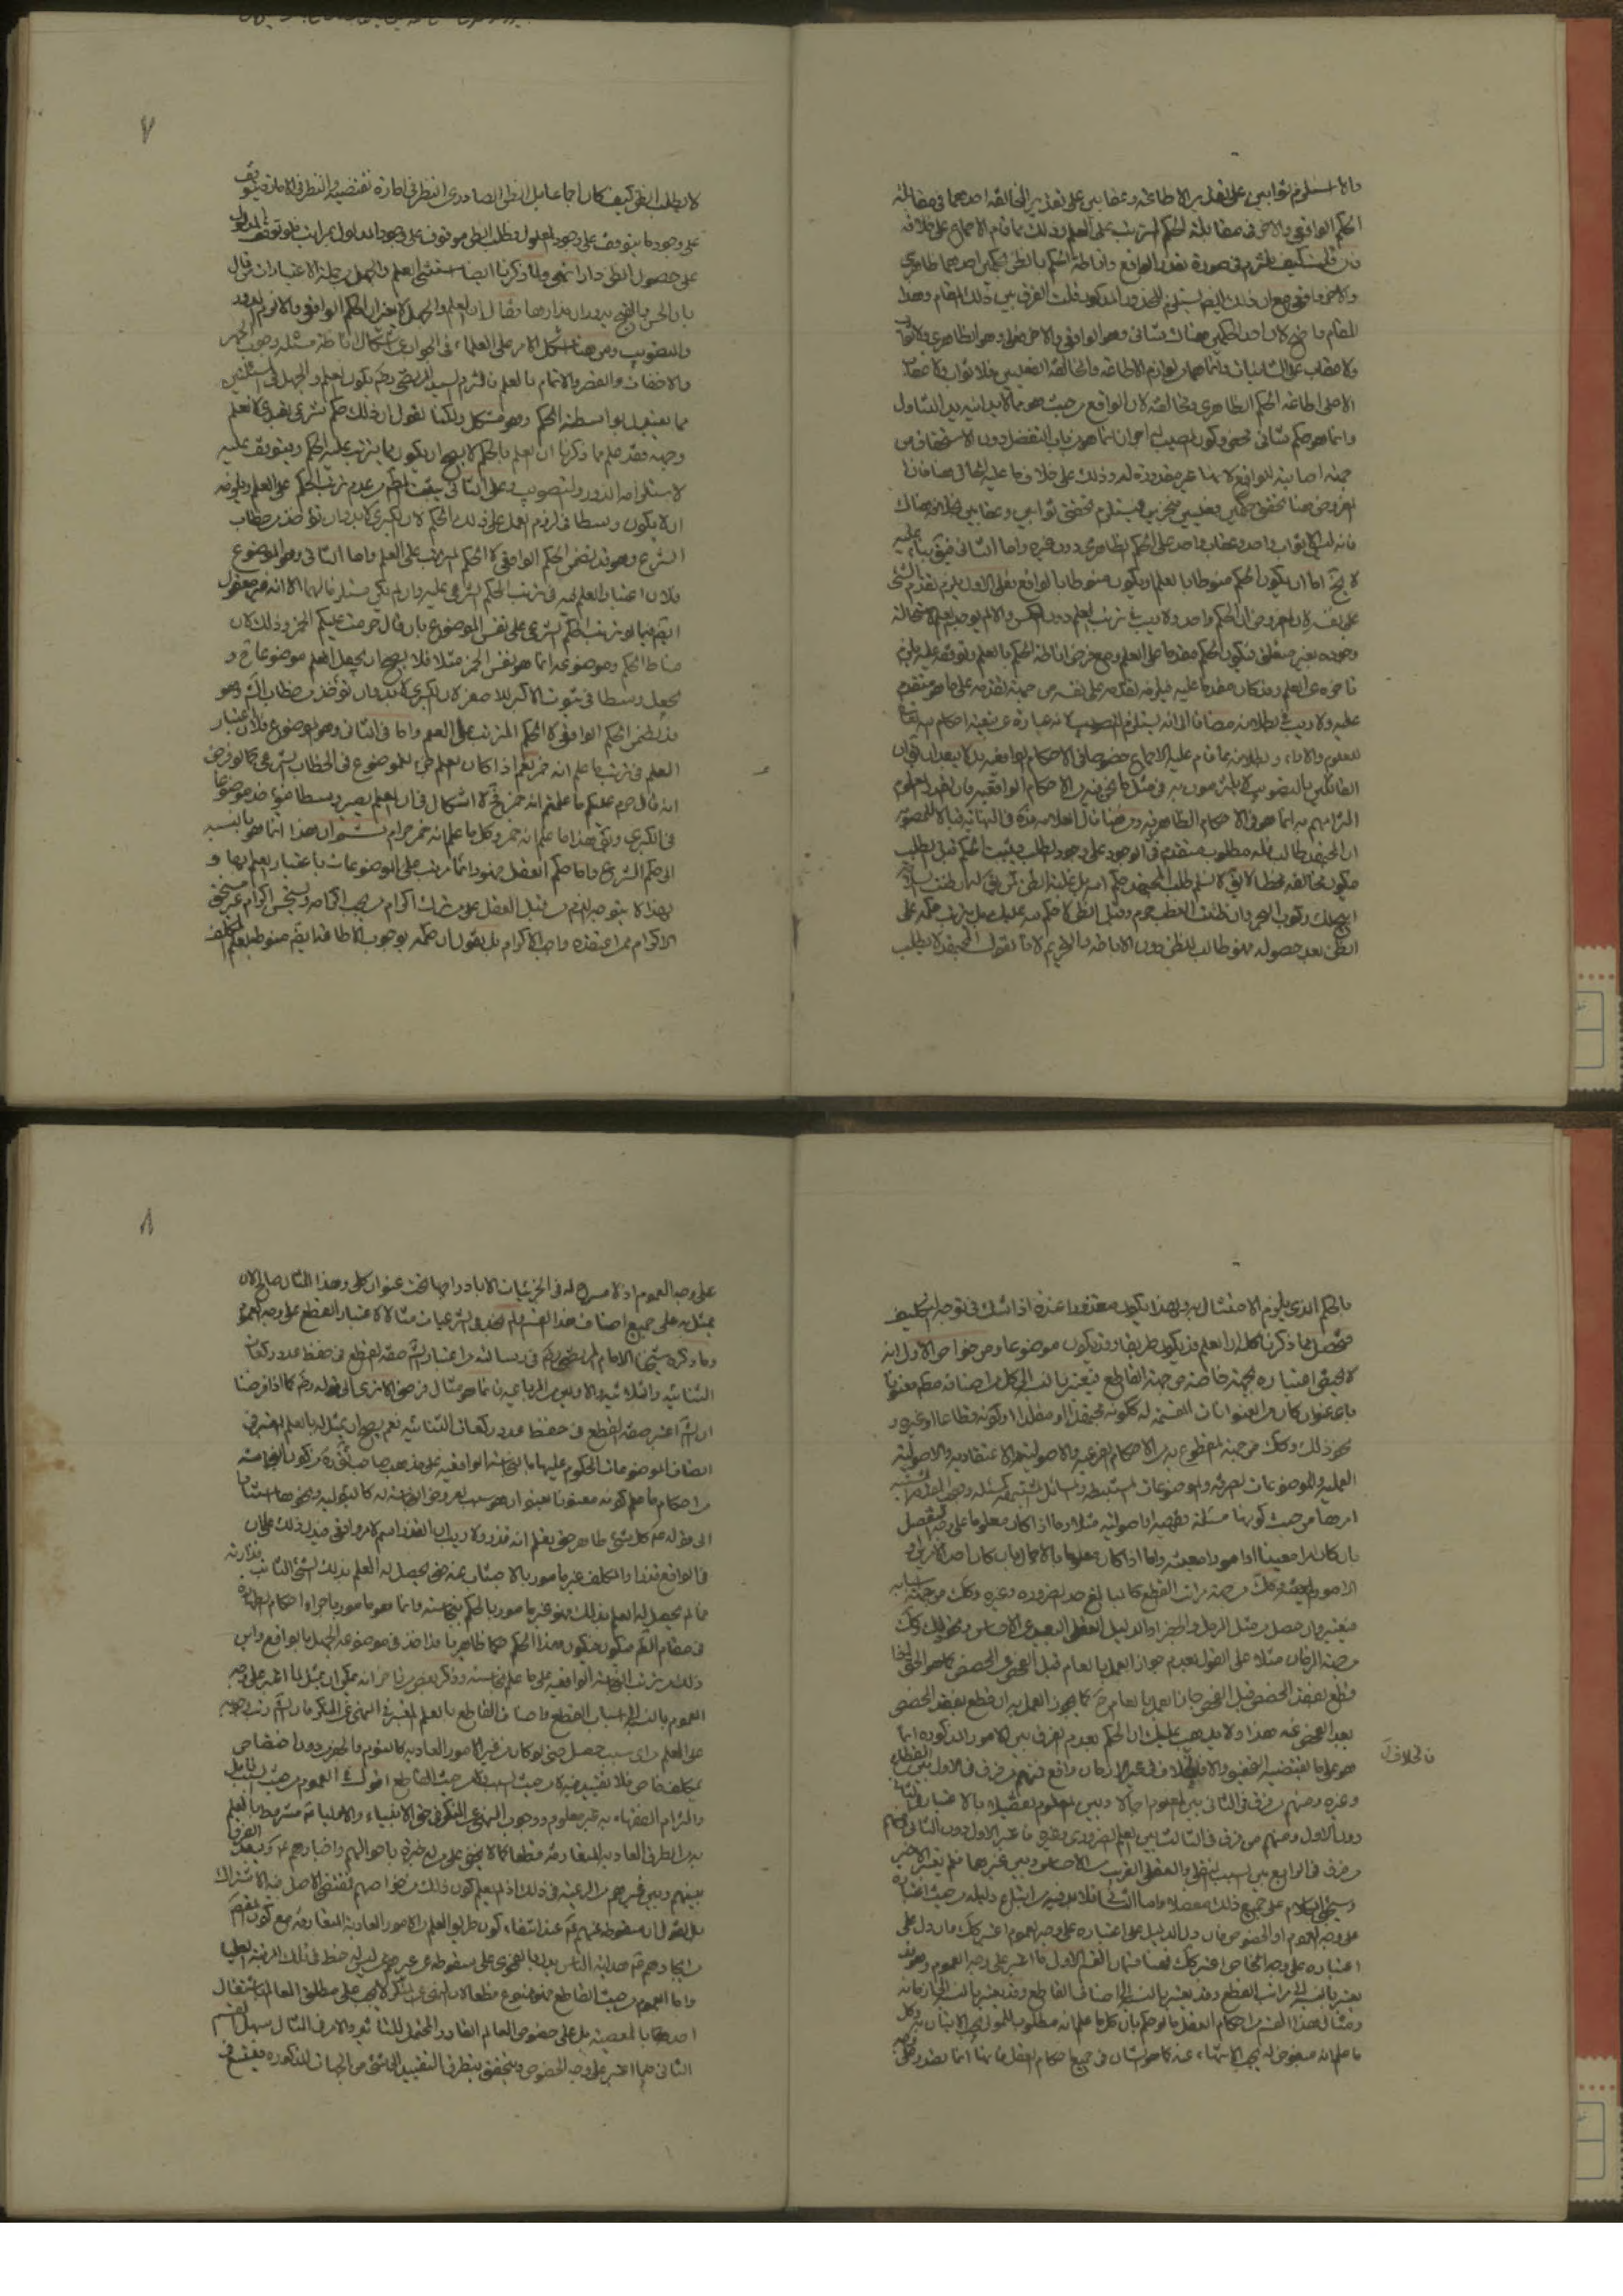 والا استلزم ثوابين على تقدير الاطاعة وعقابين على تقدير المخالفة احدهما في مقابلة
الحكم الواقعي والاخر في مقابلة الحكم المترتب على العلم وذلك مما قام الاجماع على خلافه
فان قلت كيف تلتزم في صورة تعدد الواقع واناطة الحكم بالظن بحكمين احدهما ظاهري
والاخر واقعي مع ان ذلك ايضا يستلزم المحذور المذكور قلت الفرق بين ذلك المقام وهذا
المقام واضح لان احد الحكمين هناك شاني وهو الواقعي والاخر فعلي وهو الظاهري ولا ثواب
ولا عقاب على الشانيات وانما هما من لوازم الاطاعة والمخالفة الفعليين فلا ثواب ولا عقاب
الا على اطاعة الحكم الظاهري ومخالفته لان الواقع من حيث هو مما لا يدانيه يد التناول
وانما هو حكم شاني محض وكون المصيب له اجران انما هو من باب التفضل دون الاستحقاق من
جهة اصابته للواقع لانها غير مقدورة له وذلك على خلاف ما عليه الحال في هنا فان
المفروض هنا تحقق حكمين فعليين منجزين فيستلزم تحقق ثوابين وعقابين بخلاف هناك
فانه ليس الا ثواب واحد وعقاب واحد على الحكم الظاهري دون غيره واما الثاني فيتوجه عليه
لا يخ اما ان يكون الحكم منوطا بالعلم او يكون منوطا بالواقع فعلى الاول يلزم تقدم الشئ
على نفسه لان المفروض ان الحكم واحد ولا ريب في ترتب العلم دون العكس والا لم يوجد العلم لاستحالة
وجوده بغير متعلق فيكون الحكم مقدما على العلم ومع فرض اناطة الحكم بالعلم وتوقفه عليه يلزم
تاخره عن العلم وقد كان مقدما عليه فيلزم تقدمه على نفسه من جهة تقدمه على ما هو متقدم
عليه ولا ريب في بطلانه مضافا الى انه يستلزم التصويب لانه عبارة عن تبعية احكام الله تعالى
للعلوم والاراء وبطلانه مما قام عليه الاجماع خصوصا في الاحكام الواقعية
القائلين بالتصويب لا يلتزمون به في مثل ما نحن فيه من الاحكام الواقعية فان القدر المعلوم
التزامهم به انما هو في الاحكام الظاهرية ومن هنا قال العلامة ره في النهاية نفيا للتصويب
ان المجتهد طالب فله مطلوب متقدم في الوجود على وجود الطلب فيثبت الحكم قبل الطلب
فيكون مخالفه مخطئا لا يق لا نسلم طلب المجتهد حكم الله بل غلبة الظن كمن يق له ان ظننت السلامة
ابيح لك ركوب البحر وان ظننت العطب حرم وقبل الظن لا حكم لله عليك بل يترتب حكمه على
الظن بعد حصوله فهو طالب للظن دون الاباحة والتحريم لانا نقول المجتهد لا يطلب
٧
لا يطلب الظن كيف كان اجماعا بل الظن الصادر عن النظر في امارة تقتضيه والنظر في الامارة يتوقف
على وجودها يتوقف على وجود المدلول فطلب الظن موقوف على وجود المدلول بمراتب فلو توقف المدلول
على حصول الظن دار انتهى ولما ذكرنا ايضا استثنى العلم والجهل من جملة الاعتبارات من قال
بان الحسن والقبح يدوران مدارها فقال ان العلم والجهل لا يغيران الحكم الواقعي والا لزم الدور
والتصويب ومن هنا اشكل الامر على العلماء في الجواب عن اشكال اناطة مسئلة وجوب الجهر
والاخفات والقصر والاتمام بالعلم فالتزم السيد المرتضى ره بكون العلم والجهل في المسئلتين
مما يتبدل بواسطته الحكم وهو مشكل ولكنا نقول ان ذلك حكم شرعي تعبدي لا نعلم
وجهه فقد علم مما ذكرنا ان العلم بالحكم لا يصح ان يكون مما يترتب عليه الحكم ويتوقف عليه
لاستلزامه الدور والتصويب وعلى الثاني يثبت المط من عدم ترتب الحكم على العلم ويلزمه
ان لا يكون وسطا في لزوم العمل على ذلك الحكم لان الكبرى لا بد وان تؤخذ من خطاب
الشرع وهو قد تضمن الحكم الواقعي لا الحكم المترتب على العلم واما الثاني وهو الموضوع
فلان اعتبار العلم فيه في ترتب الحكم الشرعي عليه وان لم يكن مستلزما لهما الا انه غير معقول
ايضا فيما لو ترتب الحكم الشرعي على نفس الموضوع بان قال حرمت عليكم الخمر وذلك لان
مناط الحكم وموضوعه انما هو نفس الخمر مثلا فلا يصح ان يجعل العلم موضوعا و
يجعل وسطا في ثبوت الاكبر للاصغر لان الكبرى لا بد وان تؤخذ من خطاب الشرع وهو
قد تضمن الحكم الواقعي لا الحكم المترتب على العلم واما في الثاني وهو الموضوع فلان اعتبار
العلم في ترتب ما علم انه خمر نعم اذا كان العلم طي للموضوع في الخطاب الشرعي كما لو فرض
انه قال حرم عليكم ما علمتم انه خمر فح لا اشكال في ان العلم يصير وسطا فيؤخذ موضوعا
في الكبرى ويق هذا ما علم انه خمر وكل ما علم انه خمر حرام ثم ان هذا انما هو بالنسبة
الى حكم الشرع واما حكم العقل فهو دائما يترتب على الموضوعات باعتبار العلم بها و
لهذا لا يتوجه الذم من قبل العقل على من ترك اكرام من يجب اكرامه ويستحق اكرام غير مستحق
الاكرام ممن اعتقده واجب الاكرام بل نقول ان حكمه بوجوب الاطاعة ايضا منوط بعلم المكلف
بالحكم الذي يلزم الامتثال به ولهذا يكون معتقدا عذره اذا شك في توجه التكليف
فتحصل مما ذكرنا كله ان العلم قد يكون طريقا وقد يكون موضوعا ومن خواص الاول انه
لا يختص اعتباره بجهة خاصة من جهة القاطع فيعتبر بالنسبة الى كل من اصنافه
باي عنوان كان من العنوانات المنقسمة له ككونه مجتهدا او مقلدا او كونه قطاعا او غيره و
نحو ذلك وكذا من جهة المقطوع به من الاحكام الفرعية والاصولية الاعتقادية والاصولية
العملية والموضوعات الصرفة والموضوعات المستنبطة
امرها من حيث كونها مسئلة فقهية او اصولية مثلا وما اذا كان معلوما على وجه التفصيل
بان كان امرا معينا او امورا معينة واما اذا كان معلوما بالاجمال بان كان احد الامرين او
الامور المعينة وكذا من جهة مراتب القطع كالبالغ حد الضرورة وغيره وكذا من جهة اسبابه
فيعتبر وان حصل من مثل الرمل والجفر او الدليل العقلي البعيد عن الاحساس ونحو ذلك وكذا
من جهة الزمان مثلا على القول بعدم جواز العمل بالعام قبل الفحص عن المخصص كما هو الحق لو
قطع بفقد المخصص قبل الفحص جاز العمل بالعام ح كما يجوز العمل به ان قطع بفقد المخصص
بعد الفحص عنه هذا ولا يذهب عليك ان الحكم بعدم الفرق بين الامور المذكورة انما
هو على ما يقتضيه التحقيق والا فالخلاف في غير الزمان واقع فمنهم من فرق في الاول بين القطاع
فالخلاف
وغيره ومنهم من فرق في الثاني بين المعلوم اجمالا وبين المعلوم تفصيلا
دون الاول ومنهم من فرق في الثالث بين العلم الضروري وغيره فاعتبر الاول دون الثاني ومنهم
من فرق في الرابع بين السبب العقلي والعقلي القريب من الاحساس وبين غيرها فلم يعتبر الاخير
وسيجئ الكلام على جميع ذلك مفصلا واما الثاني فلا بد فيه من اتباع دليله من حيث اعتباره
على وجه العموم او الخصوص فان دل الدليل على اعتباره على وجه العموم اعتبر كذلك وان دل على
اعتباره على وجه الخاص اعتبر كذلك فهنا قسمان القسم الاول ما اعتبر على وجه العموم وهو قد
يعتبر بالنسبة الى مراتب القطع وقد يعتبر بالنسبة الى اصناف القاطع وقد يعتبر بالنسبة الى ازمانه
ومثال هذا القسم من احكام العقل ما لو حكم بان كل ما علم انه مطلوب للمولى يجب الاتيان به وكل
ما علم انه مبغوض له يجب الانتهاء عنه كما هو الشان في جميع احكام العقل فانها انما تصدر على وجه
٨
على وجه العموم اذ لا مسرح له في الجزئيات الا بادراجها تحت عنوان كلي وهذا المثال صالح لان
يمثل به على جميع اصناف هذا القسم فلم نجد في الشرعيات مثالا لاعتبار القطع على وجه العموم
وما ذكره شيخنا الامام المرتضى ره في رسالته من اعتبار الشرع صفة القطع في حفظ عدد ركعات
الثنائية والثلاثية والاوليين من الرباعية فانما هو مثال فرضي الا ترى الى قوله ره كما اذا فرضنا
ان الشرع اعتبر صفة القطع في حفظ عدد ركعات الثنائية نعم يصح ان يمثل له بالعلم المعتبر في
اتصاف الموضوعات المحكوم عليها بالنجاسة الواقعية على مذهب صاحب الحدائق ره من كون النجاسة
من احكام ما علم كونه معنونا بعنوان هو سبب لعروض النجاسة له كالبولية ونحوها استنادا
الى قوله ع كل شئ طاهر حتى يعلم انه قذر ولا ريب ان القذر اسم لامر واقعي فيدل ذلك على ان
ما في الواقع قذرا والمكلف غير مامور بالاجتناب عنه حتى يحصل له العلم بذلك الشئ الثابت قذارته
فما لم يحصل له العلم بذلك فهو غير مامور بالحكم بنجاسته وانما هو مامور باجراء احكام الطهارة
في مقام الشك فيكون هذا الحكم حكما ظاهريا قد اخذ في موضوعه الجهل بالواقع واين
ذلك من ترتب النجاسة الواقعية على ما علم نجاسته وذكر بعض من تاخر انه يمكن ان يمثل لما اعتبر على وجه
العموم بالنسبة الى اسباب القطع واصناف القاطع بالعلم المعتبر في النهي عن المنكر فان الشرع رتب وجوبه
على العلم من اي سبب حصل حتى لو كان من غير الامور العادية كالنوم والجفر دون اختصاص
بمكلف خاص فلا تقييد فيه لا من حيث السبب ولا من حيث القاطع اقول في العموم من حيث السبب تامل
والتزام الفقهاء به غير معلوم ووجوب النهي عن المنكر في حق الانبياء والاولياء ع مشروط بالعلم
من الطرق العادية المتعارفة قطعا كما لا يخفى على من له خبرة باحوالهم واخبارهم ع ودعوى الفرق
بينهم وبين غيرهم من الرعية في ذلك اذ لم يعلم كون ذلك من خواصهم تقتضي الاصل فيه الاشتراك
بل نقول ان سقوطه عنهم ع عند انتفاء كون طريق العلم من الامور العادية المتعارفة مع كون بعثهم
وايجادهم ع هداية الناس يدل بالفحوى على سقوطه عن غيرهم ممن ليس له حظ في تلك المرتبة العليا
واما العموم من حيث القاطع فهو ممنوع قطعا لان النهي عن المنكر لا يجب على مطلق العالم باشتغال
احد بالمعصية بل على خصوص العالم القادر المحتمل للتاثير والامر في المثال سهل القسم
الثاني ما اعتبر على وجه الخصوص ويتحقق بتطرق التقييد الى شئ من الجهات المذكورة فيعتبر في